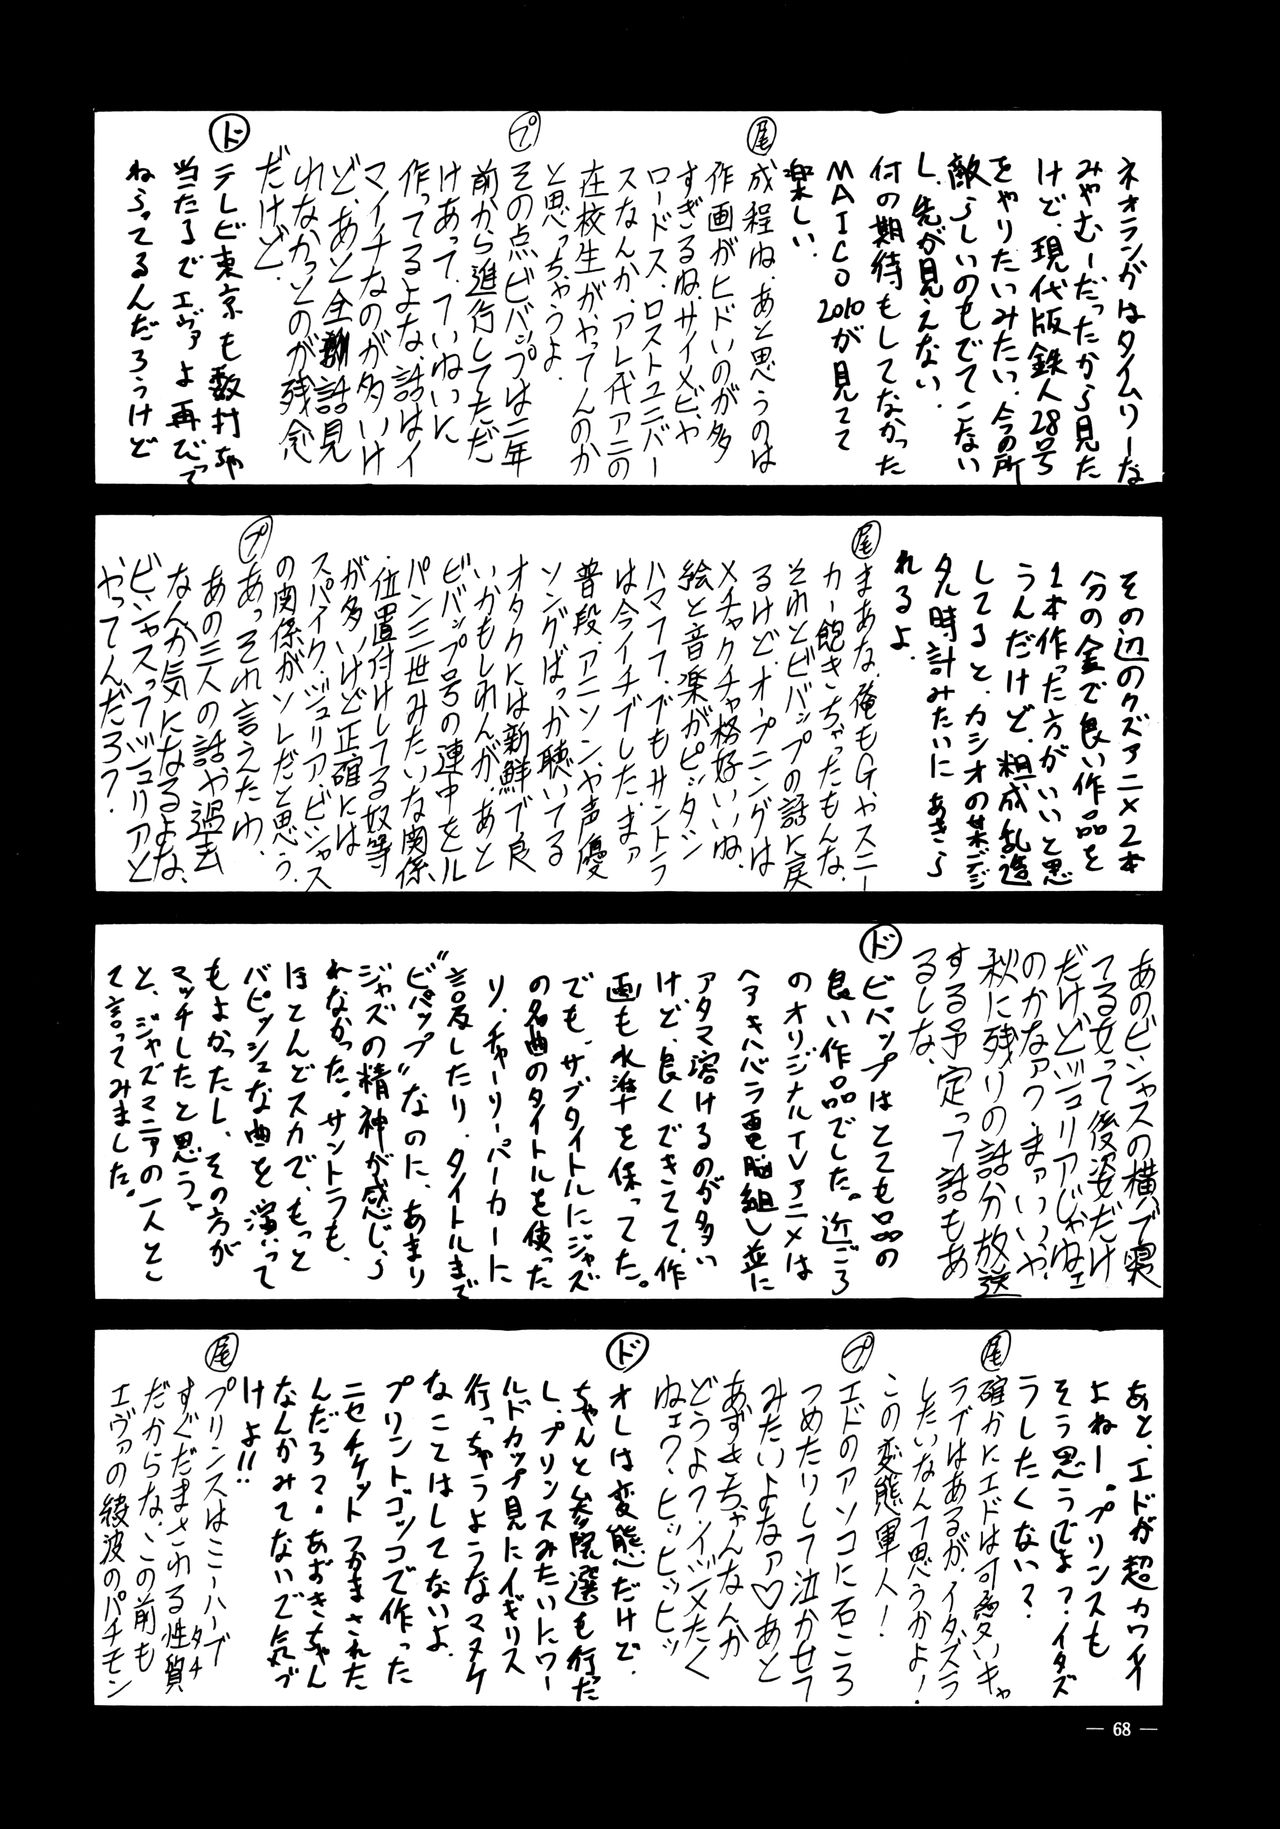 ネオランガはタイムリーな
みやむーだったから見た
けど、現代版鉄人28号
をやりたいみたい。今の所
敵らしいのもでてこない
し、先が見えない。
付の期待もしてなかった
MAICO2010が見てて
楽しい。
尾
成程ね、あと思うのは
作画がヒドいのが多
すぎるね、サイメビや
ロードス、ロストユニバー
スなんか、アレ代アニの
在校生がやってんのか
と思っちゃうよ。
プ
その点ビバップは二年
前から進行してただ
けあって、ていねいに
作ってるよな、話はイ
マイチなのが多いけ
ど、あと全話見
れなかったのが残念
だけど。
ド
テレビ東京も数打ちゃ
当たるでエヴァよ再びって
ねらってるんだろうけど
その辺のクズアニメ2本
分の金で良い作品を
1本作った方がいいと思
うんだけど、粗成乱造
してると、カシオの某デジ
タル時計みたいにあきら
れるよ。
尾
まあな、俺もG、ャスニー
カー飽きちゃったもんな。
それとビバップの話に戻
るけど、オープニングは
メチャクチャ格好いいね、
絵と音楽がピッタシ
ハマって、でもサントラ
は今イチでした、まァ
普段、アニソンや声優
ソングばっか聴いてる
オタクには新鮮で良
いかもしれんが、あと
ビバップ号の連中をル
パン三世みたいな関係
位置付けしてる奴等
が多いけど正確には
スパイク、ジュリア、ビシャス
の関係がソレだと思う。
プ
あっそれ言えたわ、
あの三人の話や過去
なんか気になるよな、
ビシャスってジュリアと
やってんだろ？
あのビシャスの横で寝
てる女って後姿だけ
だけどジュリアじゃねェ
のかなァ？まァいいや、
秋に残りの話分放送
する予定って話もあ
るしな、
ド
ビバップはとても品の
良い作品でした。近ごろ
のオリジナルTVアニメは
ヘアキハバラ電脳組し並に
アタマ溶けるのが多い
けど、良くできてて、作
画も水準を保ってた。
でも、サブタイトルにジャズ
の名曲のタイトルを使った
り、チャーリーパーカーに
言及したり、タイトルまで
“ビバップ”なのに、あまり
ジャズの精神が感じら
れなかった。サントラも、
ほとんどスカで、もっと
バピッシュな曲を演って
もよかったし、その方が
マッチしたと思う。
と、ジャズマニアの一人とし
て言ってみました。
ド
オレは変態だけど、
ちゃんと参院選も行った
し、プリンスみたいにワー
ルドカップ見にイギリス
行っちゃうようなマヌケ
なことはしてないよ。
プリントゴッコで作った
ニセチケットつかまされた
んだろ？あずきちゃん
なんかみてないで気づ
けよ!!
尾
プリンスはミーハーで
すぐだまされる性質
タチ
だからな、この前も
エヴァの綾波のパチモン
— 68 —